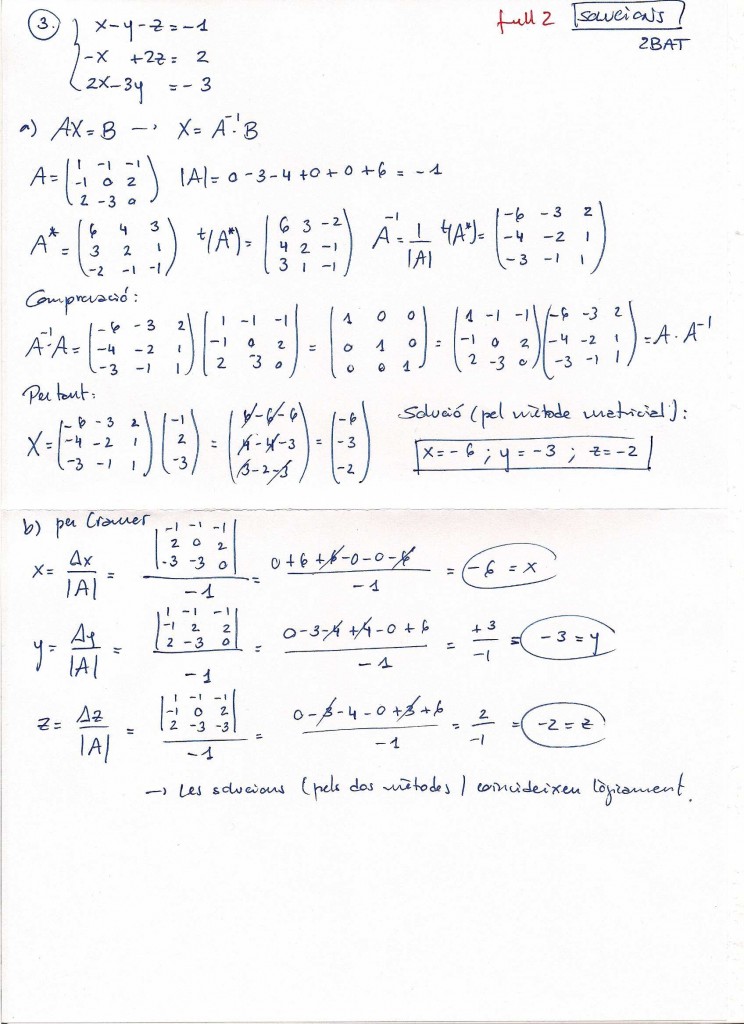 3. x-y-z=-1 full 2 SOLUCIONS
-x +2z= 2 2BAT
2x-3y =-3
a) AX=B → X=A⁻¹·B
A=(1 -1 -1; -1 0 2; 2 -3 0) |A|=0-3-4+0+0+6=-1
A*=(6 4 3; 3 2 1; -2 -1 -1) t(A*)=(6 3 -2; 4 2 -1; 3 1 -1) A⁻¹=1/|A| t(A*)=(-6 -3 2; -4 -2 1; -3 -1 1)
Comprovació:
A⁻¹·A=(-6 -3 2; -4 -2 1; -3 -1 1)(1 -1 -1; -1 0 2; 2 -3 0)=(1 0 0; 0 1 0; 0 0 1)=(1 -1 -1; -1 0 2; 2 -3 0)(-6 -3 2; -4 -2 1; -3 -1 1)=A·A⁻¹
Per tant:
X=(-6 -3 2; -4 -2 1; -3 -1 1)(-1; 2; -3)=(6-6-6; 4-4-3; 3-2-3)=(-6; -3; -2) Solució (pel mètode matricial):
x=-6 ; y=-3 ; z=-2
b) per Cramer
x= Δx/|A| = |-1 -1 -1; 2 0 2; -3 -3 0|/-1 = 0+6+6-0-0-6/-1 = -6=x
y= Δy/|A| = |1 -1 -1; -1 2 2; 2 -3 0|/-1 = 0-3-4+4-0+6/-1 = +3/-1 = -3=y
z= Δz/|A| = |1 -1 -1; -1 0 2; 2 -3 -3|/-1 = 0-3-4-0+3+6/-1 = 2/-1 = -2=z
→ Les solucions (pels dos mètodes) coincideixen lògicament.